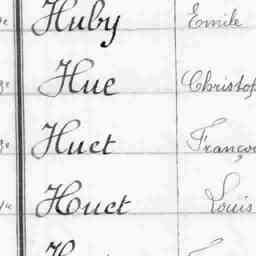 Huby Emile
Hue Christop
Huet Françoi
Huet Louis